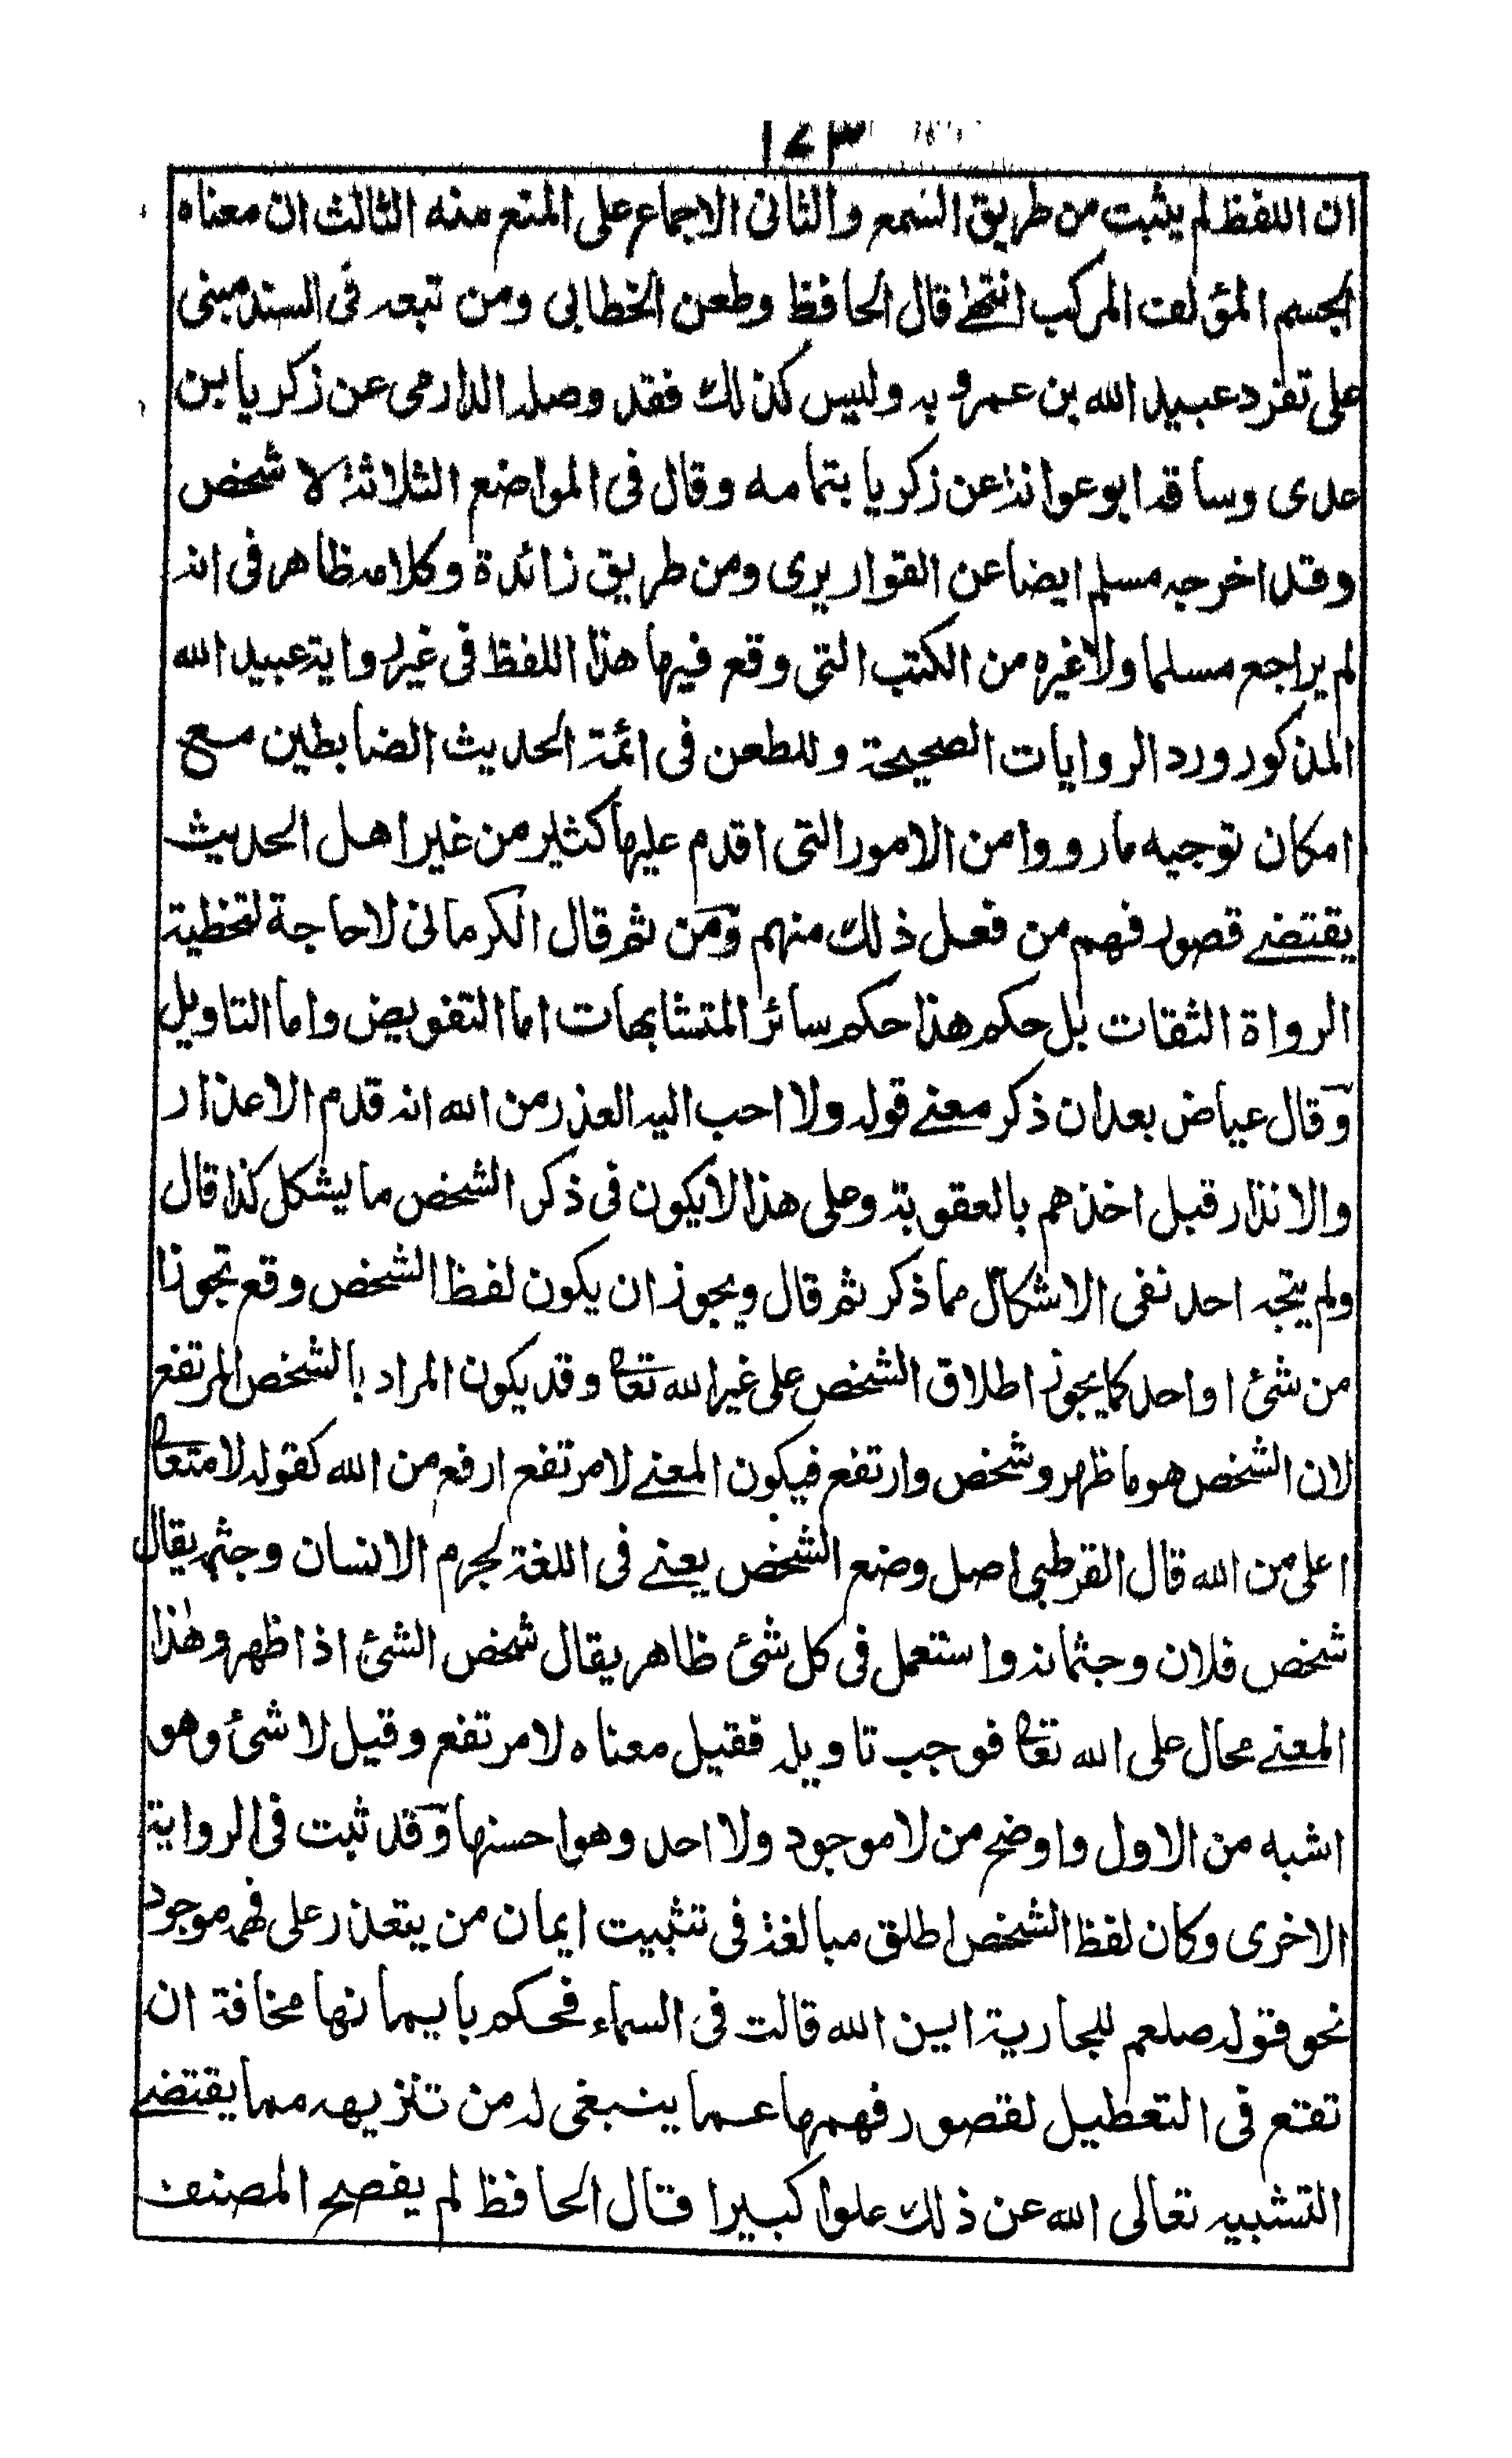 ١٧٣
ان اللفظ لم يثبت من طريق السمع والثاني الاجماع على المنع منه الثالث ان معناه
الجسم المؤلف المركب انتهى قال الحافظ وطعن الخطابي ومن تبعه في السند مبني
على تفرد عبيد الله بن عمرو به وليس كذلك فقد وصله الدارمي عن زكريا بن
عدى وساقه ابو عوانة عن زكريا بتمامه وقال في المواضع الثلاثة لا شخص
وقد اخرجه مسلم ايضا عن القواريرى ومن طريق زائدة وكلامه ظاهر في انه
لم يراجع مسلما ولا غيره من الكتب التى وقع فيها هذا اللفظ في غير رواية عبيد الله
المذكور ورد الروايات الصحيحة وللطعن في ائمة الحديث الضابطين مع
امكان توجيه ما رووا من الامور التى اقدم عليها كثير من غير اهل الحديث
يقتضے قصور فهم من فعل ذلك منهم ومن ثم قال الكرماني لا حاجة لتخطية
الرواة الثقات بل حكم هذا حكم سائر المتشابهات اما التفويض واما التاويل
وقال عياض بعد ان ذكر معنے قوله ولا احب اليه العذر من الله انه قدم الاعذار
والانذار قبل اخذهم بالعقوبة وعلى هذا لا يكون في ذكر الشخص ما يشكل كذا قال
ولم يتجه احد نفى الاشكال مما ذكر ثم قال ويجوز ان يكون لفظ الشخص وقع تجوزا
من شئ او احد كما يجوز اطلاق الشخص على غير الله تعالى وقد يكون المراد بالشخص المرتفع
لان الشخص هو ما ظهر وشخص وارتفع فيكون المعنے لا مرتفع ارفع من الله كقوله لا متعالى
اعلى من الله قال القرطبي اصل وضع الشخص يعنے في اللغة لجرم الانسان وجثمه يقال
شخص فلان وجثمانه واستعمل في كل شئ ظاهر يقال شخص الشئ اذا ظهر وهذا
المعنے محال على الله تعالى فوجب تاويله فقيل معناه لا مرتفع وقيل لا شئ وهو
اشبه من الاول واوضح من لا موجود ولا احد وهو احسنها وقد ثبت في الرواية
الاخرى وكان لفظ الشخص اطلق مبالغة في تثبيت ايمان من يتعذر على فهمه موجود
نحو قوله صلعم للجارية اين الله قالت في السماء فحكم بايمانها مخافة ان
تقع في التعطيل لقصور فهمها عما ينبغي له من تنزيهه مما يقتضے
التشبيه تعالى الله عن ذلك علوا كبيرا قال الحافظ لم يفصح المصنف